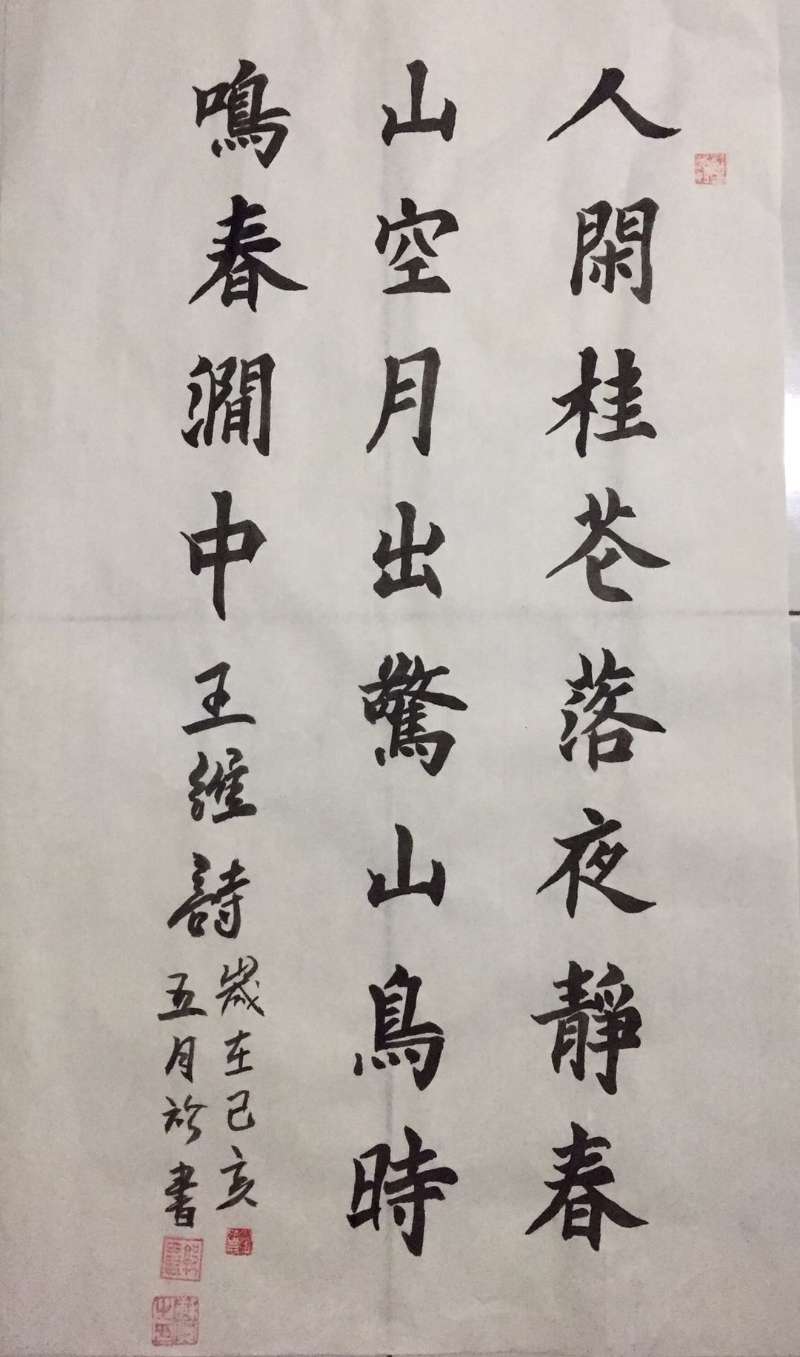 人閑桂花落夜靜春
山空月出驚山鳥時
鳴春澗中王維詩
歲在己亥
五月 書